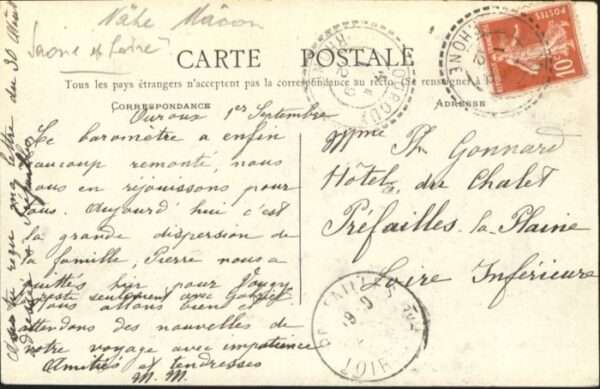 Nähe Mâcon
Saone et Loire
CARTE POSTALE
Tous les pays étrangers n'acceptent pas la correspondance au recto (Se renseigner à
CORRESPONDANCE
ADRESSE
Ouroux 1er Septembre
Le baromètre a enfin
beaucoup remonté, nous
nous en réjouissons pour
vous. Aujourd'hui c'est
la grande dispersion de
la famille, Pierre nous a
quittés hier pour
reste seulement avec Gabriel
nous allons bien et
attendons des nouvelles de
notre voyage avec impatience
Amitiés et tendresses
M. M.
reçu ma lettre du 30 Août
Mme Ph Gonnard
Hôtel du Chalet
Préfailles la Plaine
Loire Inférieure
RHONE
10
LOIR